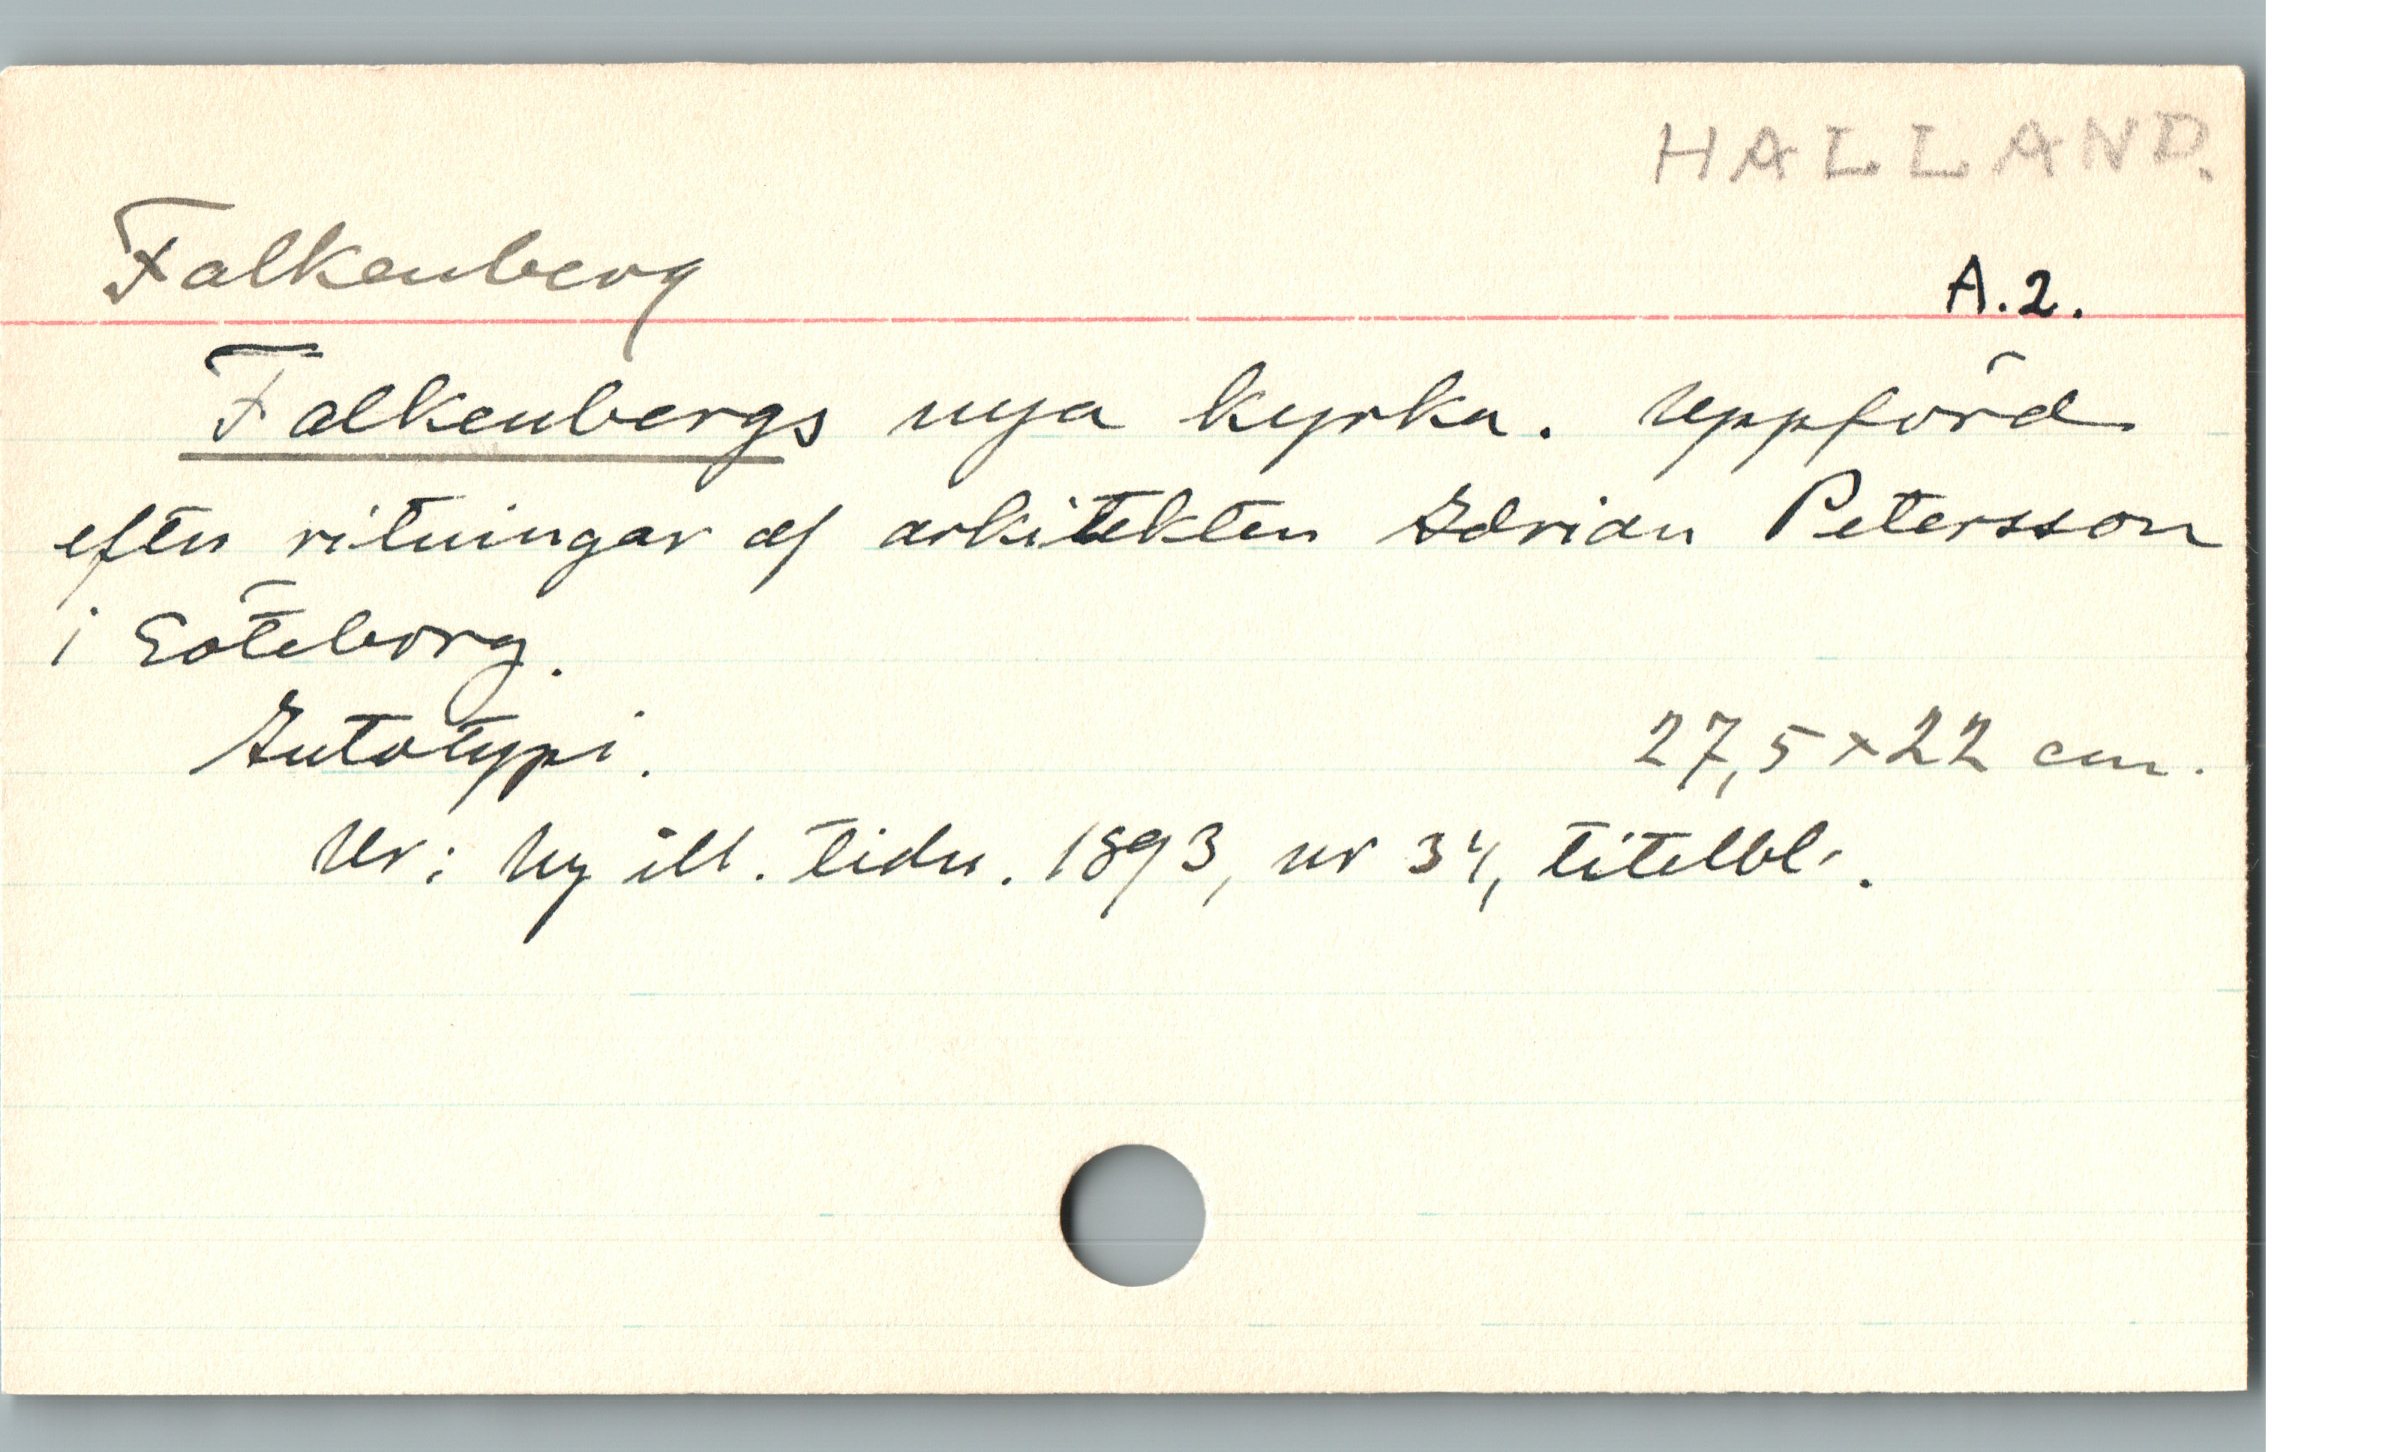 HALLAND.
Falkenberg
A.2.
Falkenbergs nya kyrka. Uppförd
efter ritningar af arkitekten Adrian Petersson
i Göteborg.
Autotypi.
27,5 x 22 cm.
Ur: Ny ill. tidn. 1893, nr 34, titelbl.